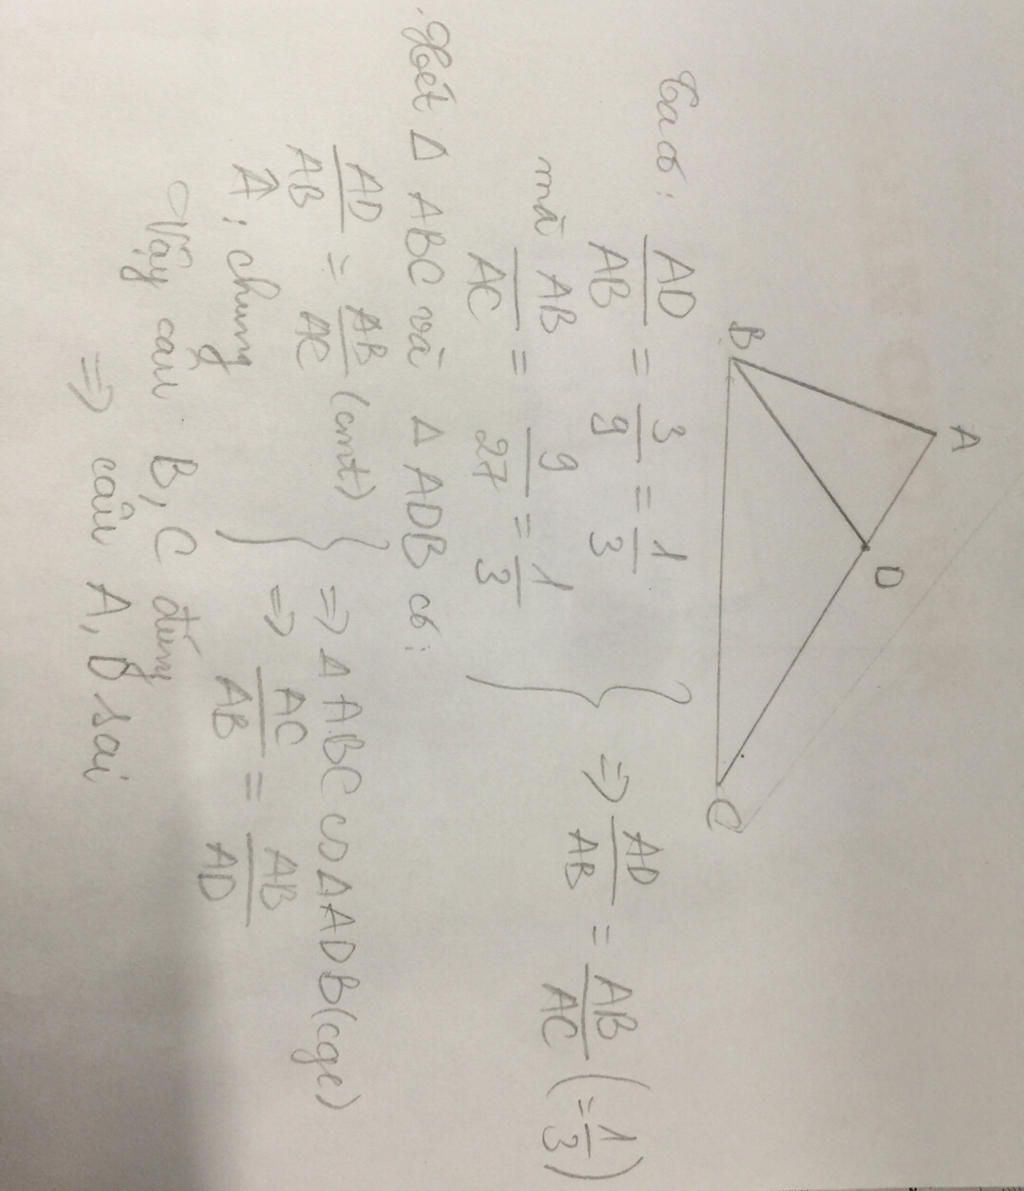 A
B
D
C
Ta có: AD/AB = 3/9 = 1/3
mà AB/AC = 9/27 = 1/3
} => AD/AB = AB/AC (= 1/3)
Xét Δ ABC và Δ ADB có:
AD/AB = AB/AC (cmt)
Â: chung
} => Δ ABC ∽ Δ ADB (cgc)
=> AC/AB = AB/AD
Vậy câu B, C đúng
=> câu A, D sai